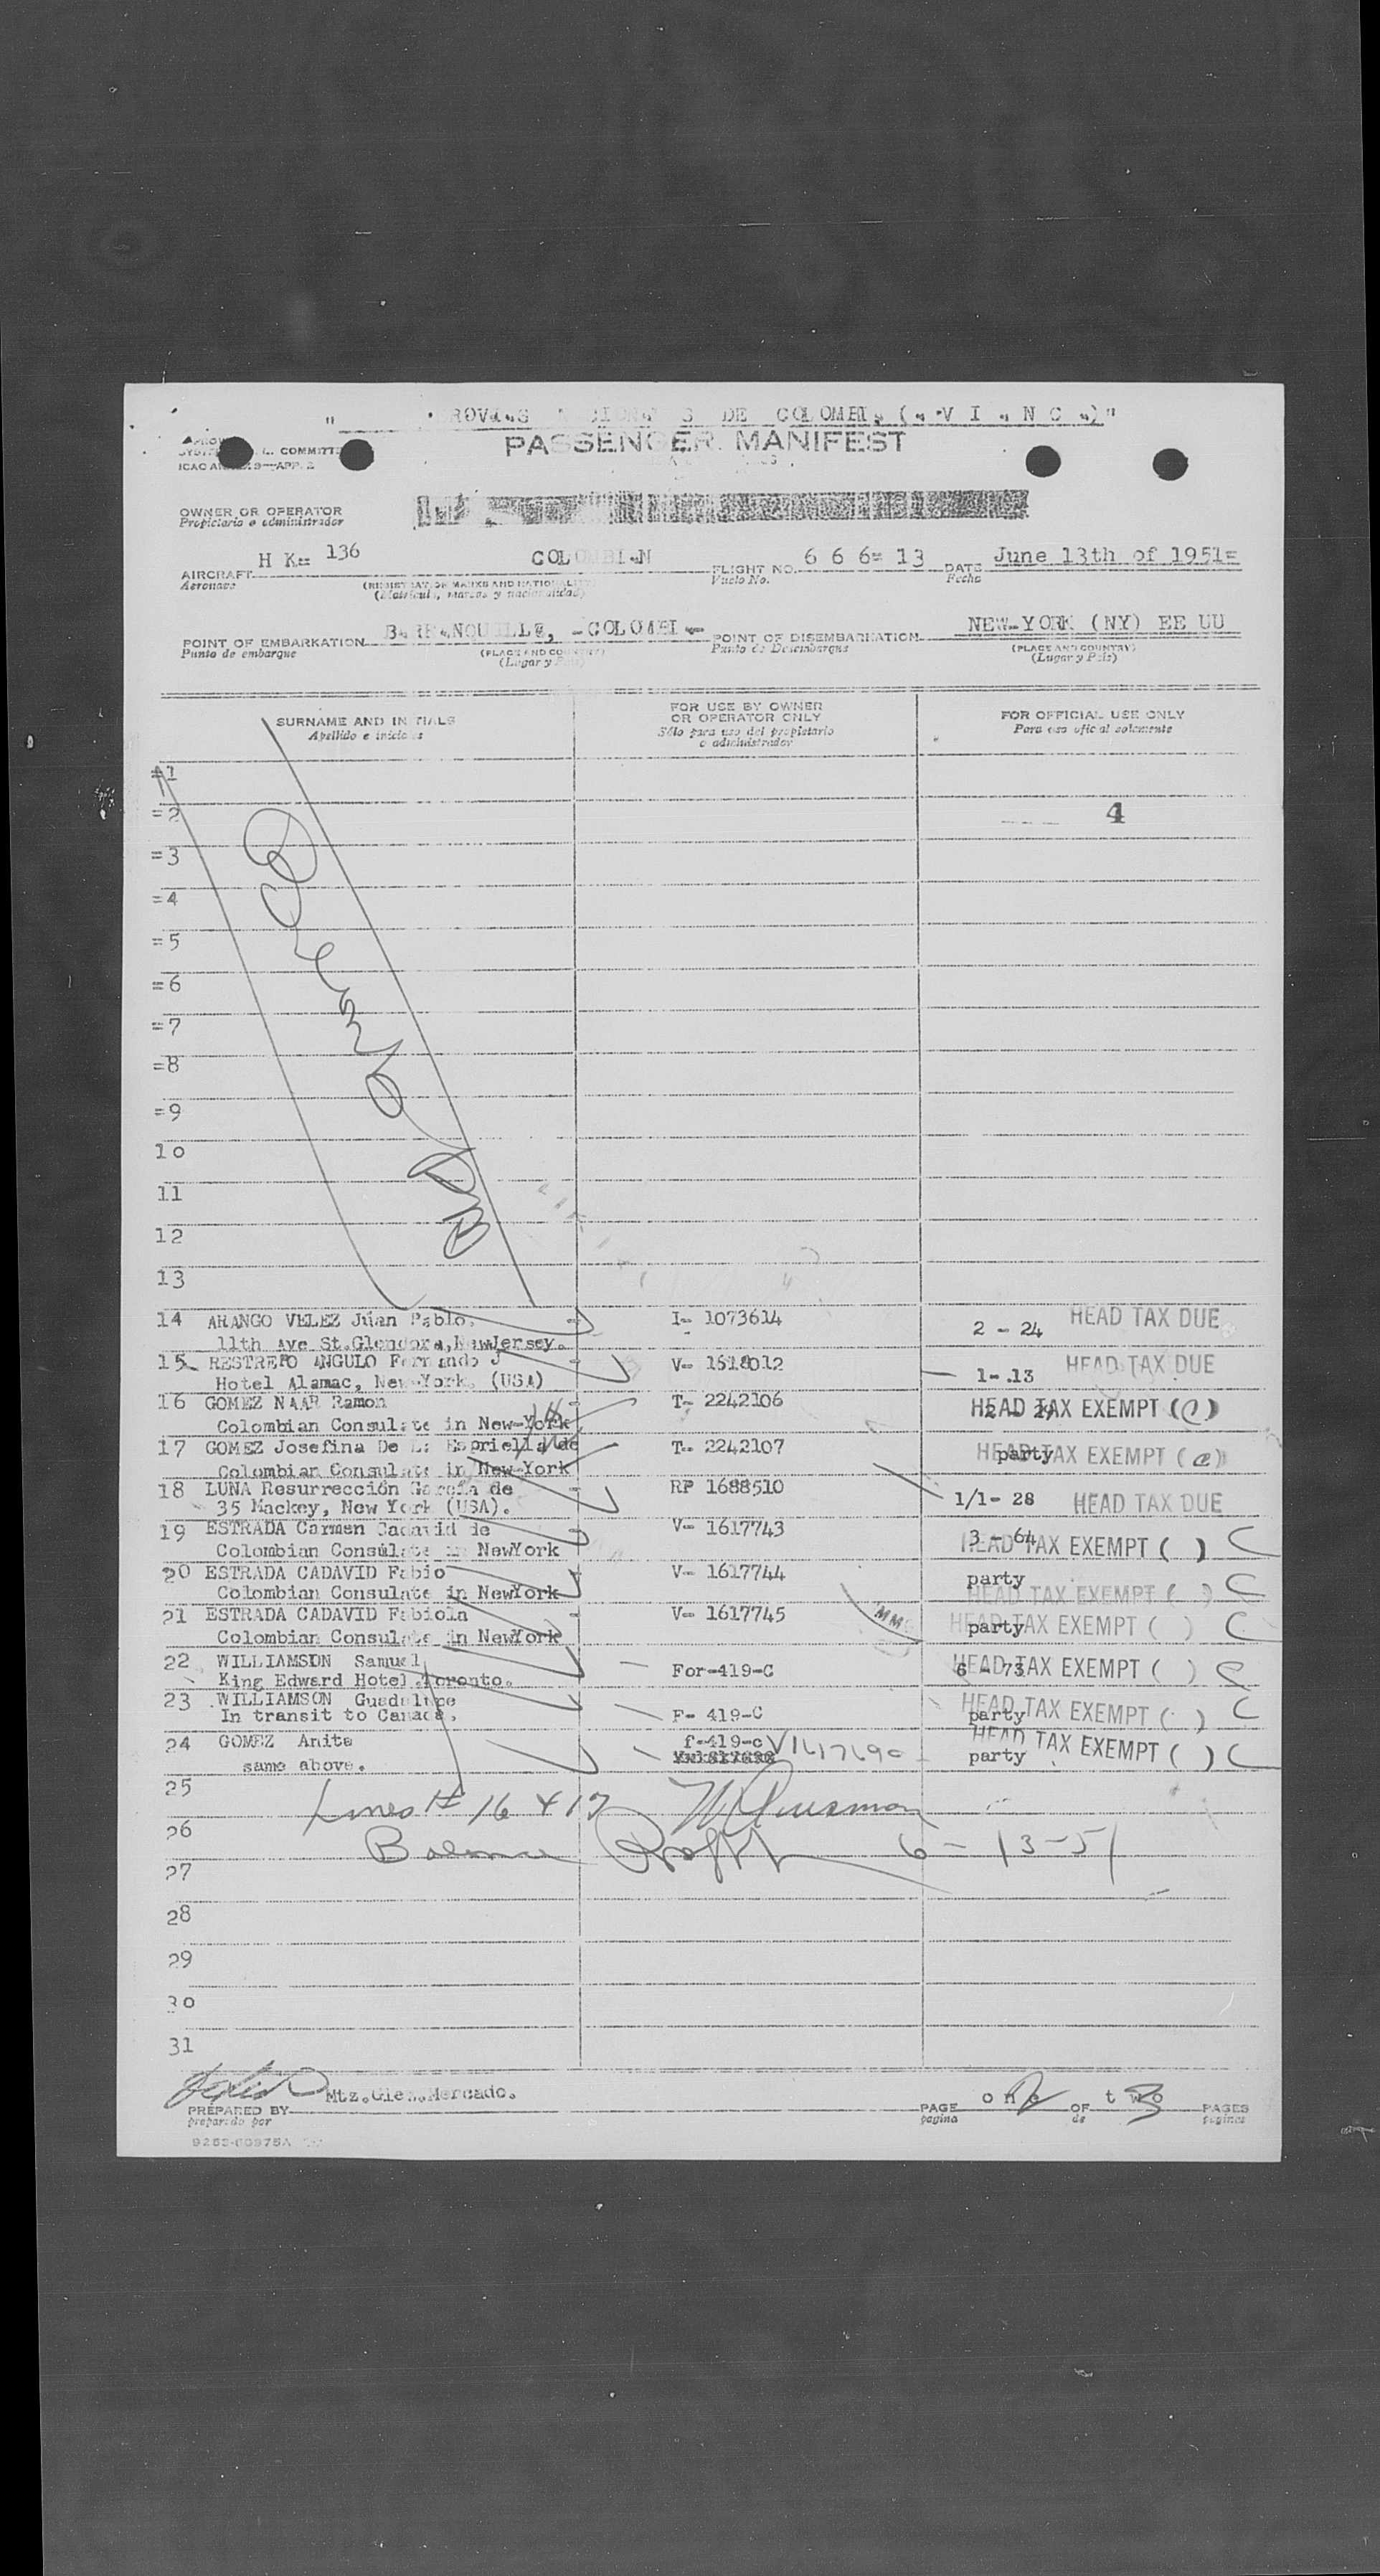 DE COLOMBI
PASSENGER MANIFEST
COMMITT
OWNER OR OPERATOR
Propietario o administrador
AIRCRAFT H K= 136 COLOMBIAN FLIGHT NO. 6 6 6= 13 DATE June 13th of 1951=
Aeronave (REGISTRATION MARKS AND NATIONALITY) Vuelo No. Fecha
(Matricula, marcas y nacionalidad)
POINT OF EMBARKATION BARRANQUILLE, -COLOMBI POINT OF DISEMBARKATION NEW-YORK (NY) EE UU
Punto de embarque (PLACE AND COUNTRY) Punto de Desembarque (PLACE AND COUNTRY)
(Lugar y País) (Lugar y País)
SURNAME AND INITIALS FOR USE BY OWNER OR OPERATOR ONLY FOR OFFICIAL USE ONLY
Apellido e iniciales Sólo para uso del propietario o administrador Para uso oficial solamente
=1
=2 4
=3
=4
=5
=6
=7
=8
=9
10
11
12
13
14 ARANGO VELEZ Júan Pablo. I- 1073614 2 - 24 HEAD TAX DUE
11th Ave St.Glendora,NewJersey.
15 RESTREPO ANGULO Fernando J V- 1618012 1-.13 HEAD TAX DUE
Hotel Alamac, New-York. (USA)
16 GOMEZ NAAR Ramon T- 2242106 HEAD TAX EXEMPT (C)
Colombian Consulate in New-York
17 GOMEZ Josefina De La Espriella de T- 2242107 party HEAD TAX EXEMPT (C)
Colombian Consulate in New-York
18 LUNA Resurrección García de RP 1688510 1/1- 28 HEAD TAX DUE
35 Mackey, New York (USA).
19 ESTRADA Carmen Cadavid de V- 1617743 3 - 64 HEAD TAX EXEMPT ( ) C
Colombian Consulate in NewYork
20 ESTRADA CADAVID Fabio V- 1617744 party HEAD TAX EXEMPT ( ) C
Colombian Consulate in NewYork
21 ESTRADA CADAVID Fabiola V- 1617745 party HEAD TAX EXEMPT ( ) C
Colombian Consulate in NewYork
22 WILLIAMSON Samuel For-419-C 6 - 73 HEAD TAX EXEMPT ( ) C
King Edward Hotel.Toronto.
23 WILLIAMSON Guadalupe F- 419-C party HEAD TAX EXEMPT ( ) C
In transit to Canada.
24 GOMEZ Anita f-419-c party HEAD TAX EXEMPT ( ) C
same above.
25
Lines # 16 & 17
26
Balance 6-13-51
27
28
29
30
31
PREPARED BY Mtz.Glez.Mercado. PAGE one OF two PAGES
preparado por pagina de paginas